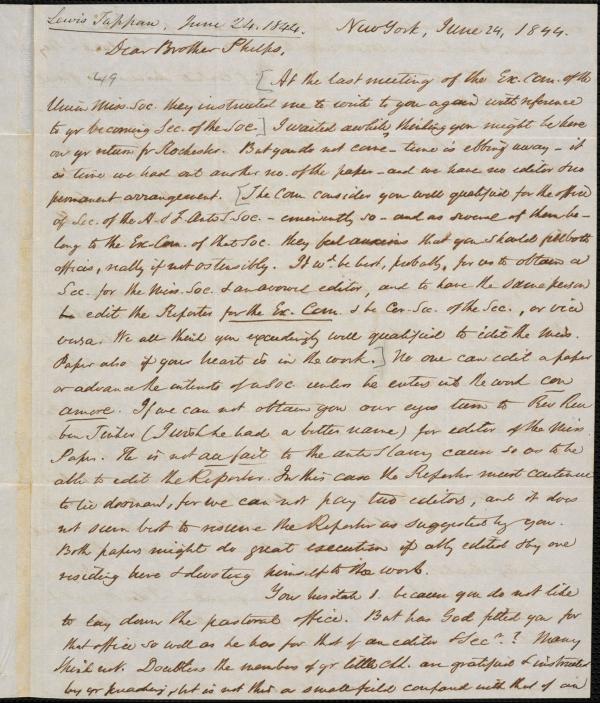 Lewis Tappan, June 24. 1844.
New York, June 24, 1844.
Dear Brother Phelps,
49
[At the last meeting of the Ex. Com. of the
Union Miss. Soc. they instructed me to write to you again with reference
to yr becoming Sec. of the Soc.] I waited awhile, thinking you might be here
on yr return fr Rochester. But you do not come - time is ebbing away - it
is time we had out another no. of the paper - and we have no editor & no
permanent arrangement. [The Com consider you well qualified for the office
of Sec. of the A. & F. Anti S. Soc. - eminently so - and as several of them be-
long to the Ex. Com. of that Soc. they feel anxious that you should fill both
offices, really if not ostensibly. It wd. be best, probably, for us to obtain a
Sec. for the Miss. Soc. & an avowed editor, and to have the same person
edit the Reporter for the Ex. Com. & be Cor. Sec. of the Soc., or vice
versa. We all think you exceedingly well qualified to edit the Miss.
Paper also if your heart is in the work.] No one can edit a paper
or advance the interests of a Soc unless he enters into the work con
amore. If we can not obtain you our eyes turn to Rev Reu
ben Tinker (I wish he had a better name) for editor of the Miss.
Paper. He is not au fait to the anti slavery cause so as to be
able to edit the Reporter. In this case the Reporter must continue
to lie dormant, for we can not pay two editors, and it does
not seem best to the Reporter as suggested by you.
Both papers might do great execution if ably edited & by one
residing here & devoting himself to the work.
You hesitate 1. because you do not like
to lay down the pastoral office. But has God fitted you for
that office so well as he has for that of an editor & Secy.? Many
think not. Doubtless the members of yr little ch. are gratified & instructed
by yr preaching, but is not this a small field compared with that of an